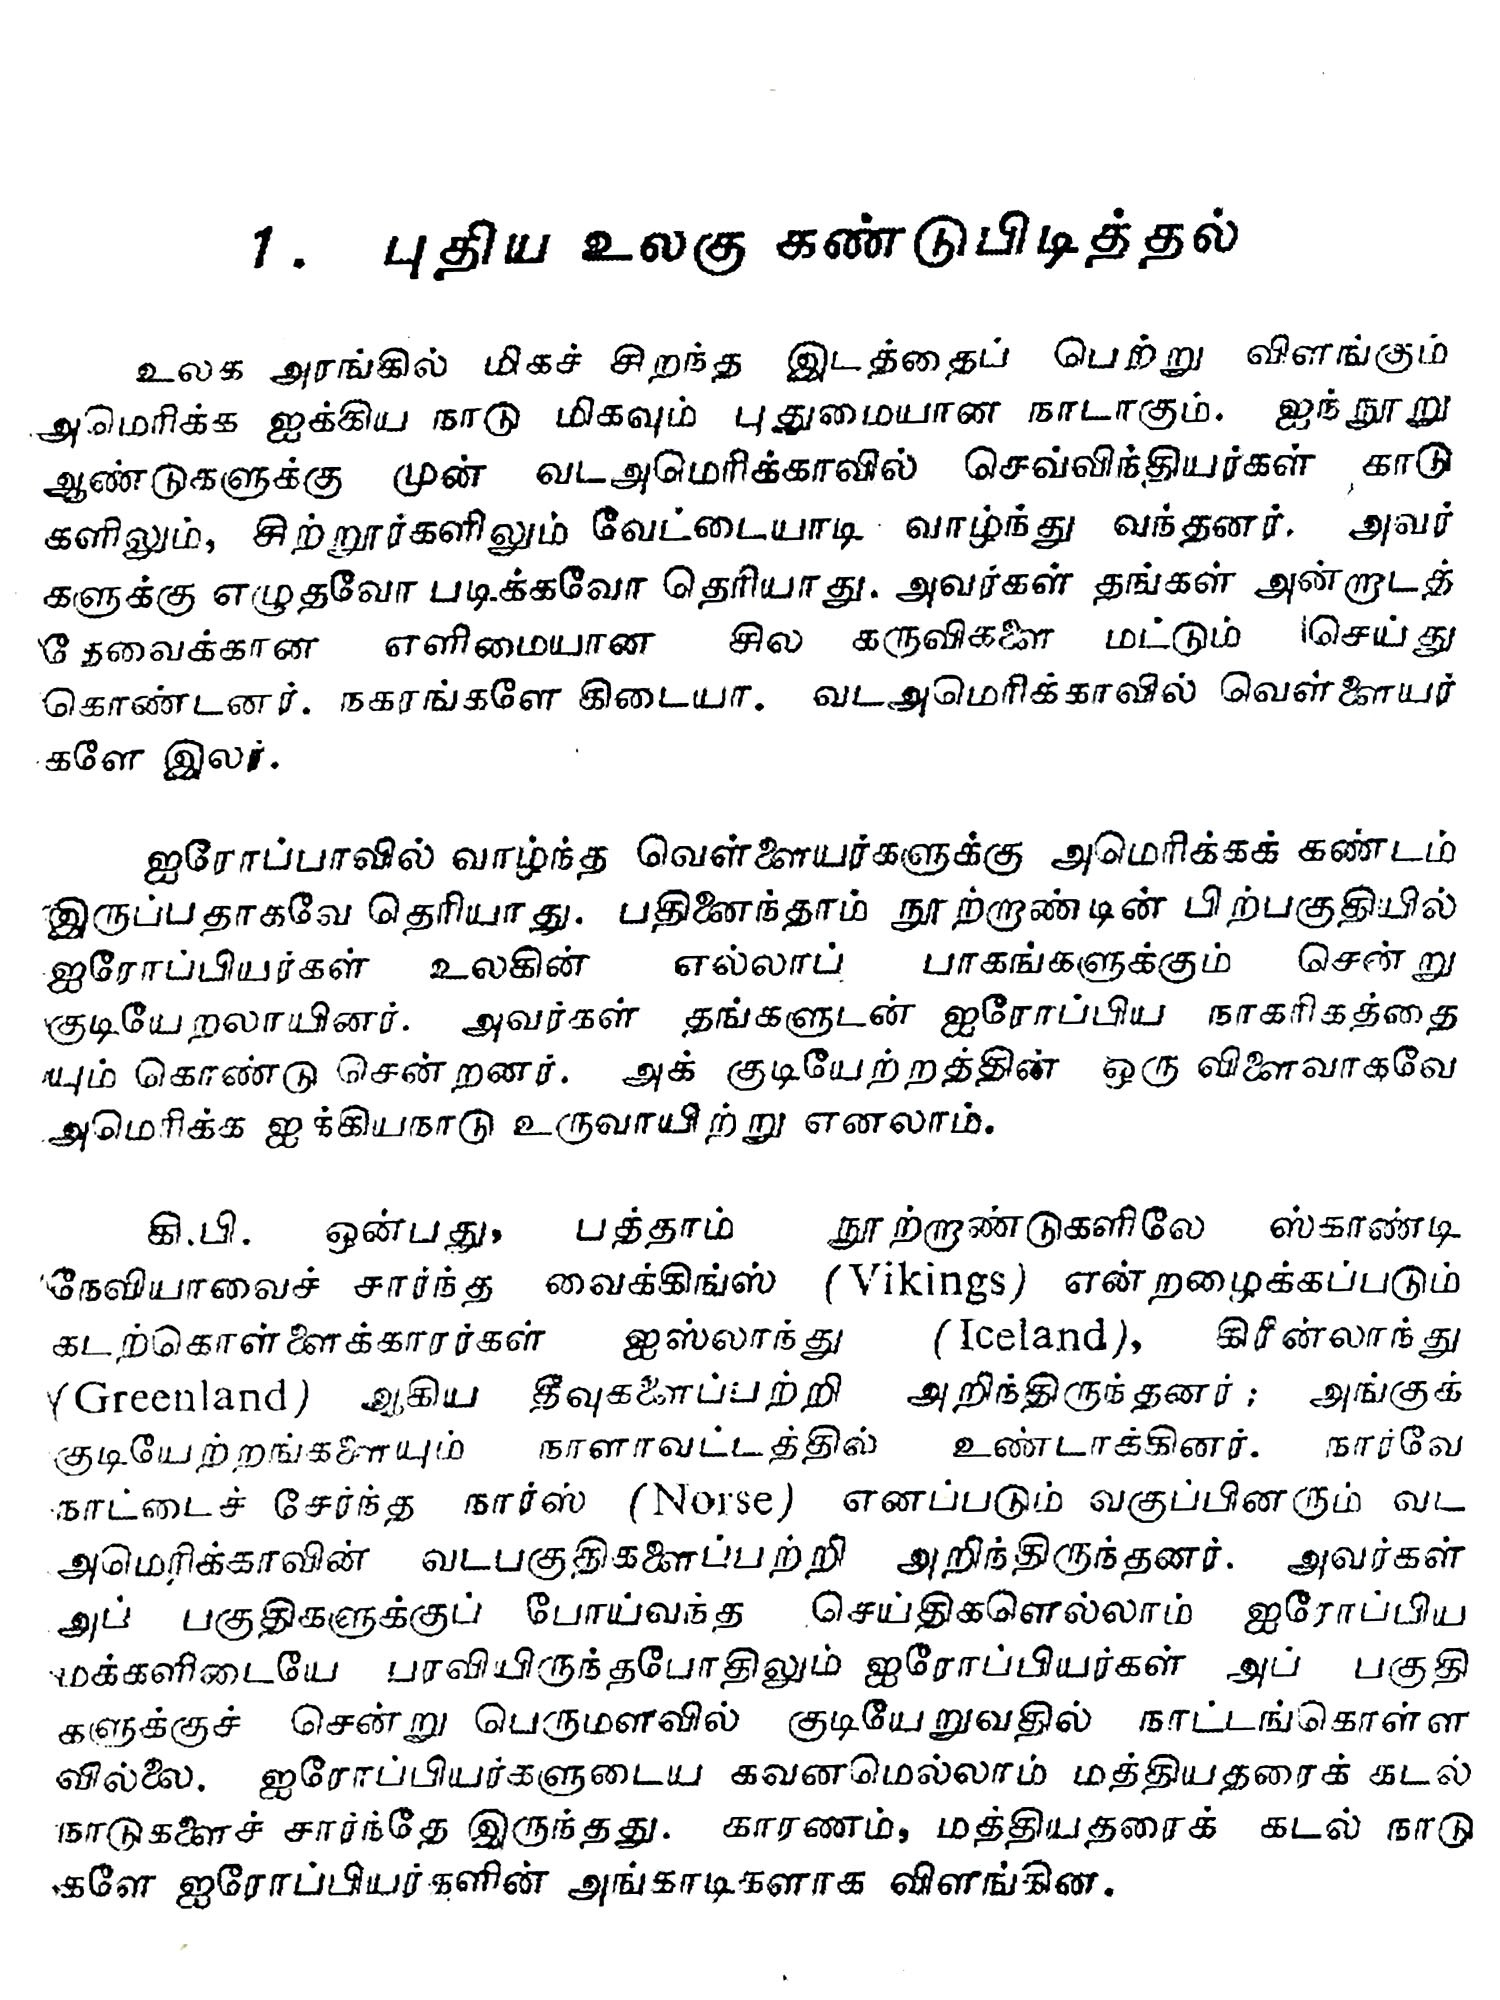 1. புதிய உலகு கண்டுபிடித்தல்
உலக அரங்கில் மிகச் சிறந்த இடத்தைப் பெற்று விளங்கும்
அமெரிக்க ஐக்கிய நாடு மிகவும் புதுமையான நாடாகும். ஐந்நூறு
ஆண்டுகளுக்கு முன் வடஅமெரிக்காவில் செவ்விந்தியர்கள் காடு
களிலும், சிற்றூர்களிலும் வேட்டையாடி வாழ்ந்து வந்தனர். அவர்
களுக்கு எழுதவோ படிக்கவோ தெரியாது. அவர்கள் தங்கள் அன்றாடத்
தேவைக்கான எளிமையான சில கருவிகளை மட்டும் செய்து
கொண்டனர். நகரங்களே கிடையா. வடஅமெரிக்காவில் வெள்ளையர்
களே இலர்.
ஐரோப்பாவில் வாழ்ந்த வெள்ளையர்களுக்கு அமெரிக்கக் கண்டம்
இருப்பதாகவே தெரியாது. பதினைந்தாம் நூற்றாண்டின் பிற்பகுதியில்
ஐரோப்பியர்கள் உலகின் எல்லாப் பாகங்களுக்கும் சென்று
குடியேறலாயினர். அவர்கள் தங்களுடன் ஐரோப்பிய நாகரிகத்தை
யும் கொண்டு சென்றனர். அக் குடியேற்றத்தின் ஒரு விளைவாகவே
அமெரிக்க ஐக்கியநாடு உருவாயிற்று எனலாம்.
கி.பி. ஒன்பது, பத்தாம் நூற்றாண்டுகளிலே ஸ்காண்டி
நேவியாவைச் சார்ந்த வைக்கிங்ஸ் (Vikings) என்றழைக்கப்படும்
கடற்கொள்ளைக்காரர்கள் ஐஸ்லாந்து (Iceland), கிரீன்லாந்து
(Greenland) ஆகிய தீவுகளைப்பற்றி அறிந்திருந்தனர்; அங்குக்
குடியேற்றங்களையும் நாளாவட்டத்தில் உண்டாக்கினர். நார்வே
நாட்டைச் சேர்ந்த நார்ஸ் (Norse) எனப்படும் வகுப்பினரும் வட
அமெரிக்காவின் வடபகுதிகளைப்பற்றி அறிந்திருந்தனர். அவர்கள்
அப் பகுதிகளுக்குப் போய்வந்த செய்திகளெல்லாம் ஐரோப்பிய
மக்களிடையே பரவியிருந்தபோதிலும் ஐரோப்பியர்கள் அப் பகுதி
களுக்குச் சென்று பெருமளவில் குடியேறுவதில் நாட்டங்கொள்ள
வில்லை. ஐரோப்பியர்களுடைய கவனமெல்லாம் மத்தியதரைக் கடல்
நாடுகளைச் சார்ந்தே இருந்தது. காரணம், மத்தியதரைக் கடல் நாடு
களே ஐரோப்பியர்களின் அங்காடிகளாக விளங்கின.